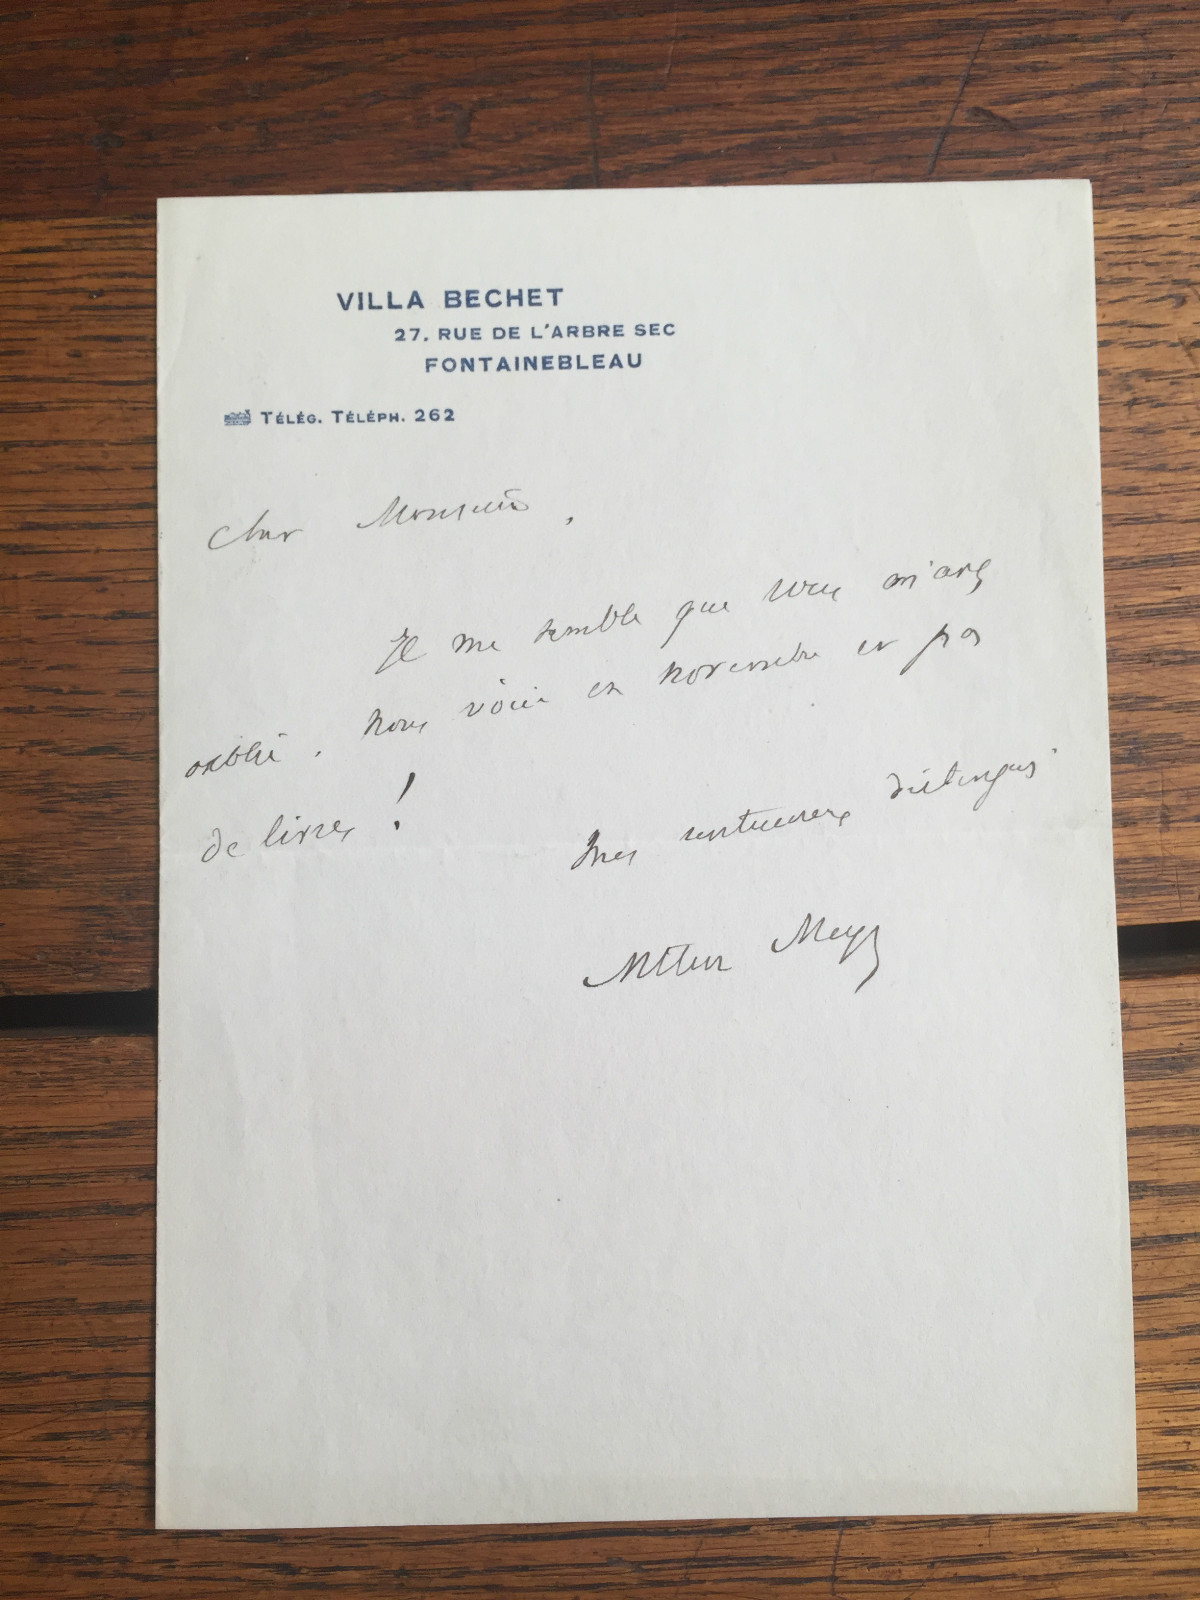 VILLA BECHET
27. RUE DE L'ARBRE SEC
FONTAINEBLEAU
TÉLÉG. TÉLÉPH. 262
Cher Monsieur,
Il me semble que vous m'avez
oublié. Nous voici en novembre et pas
de livres !
Mes sentiments distingués
Arthur Meyer